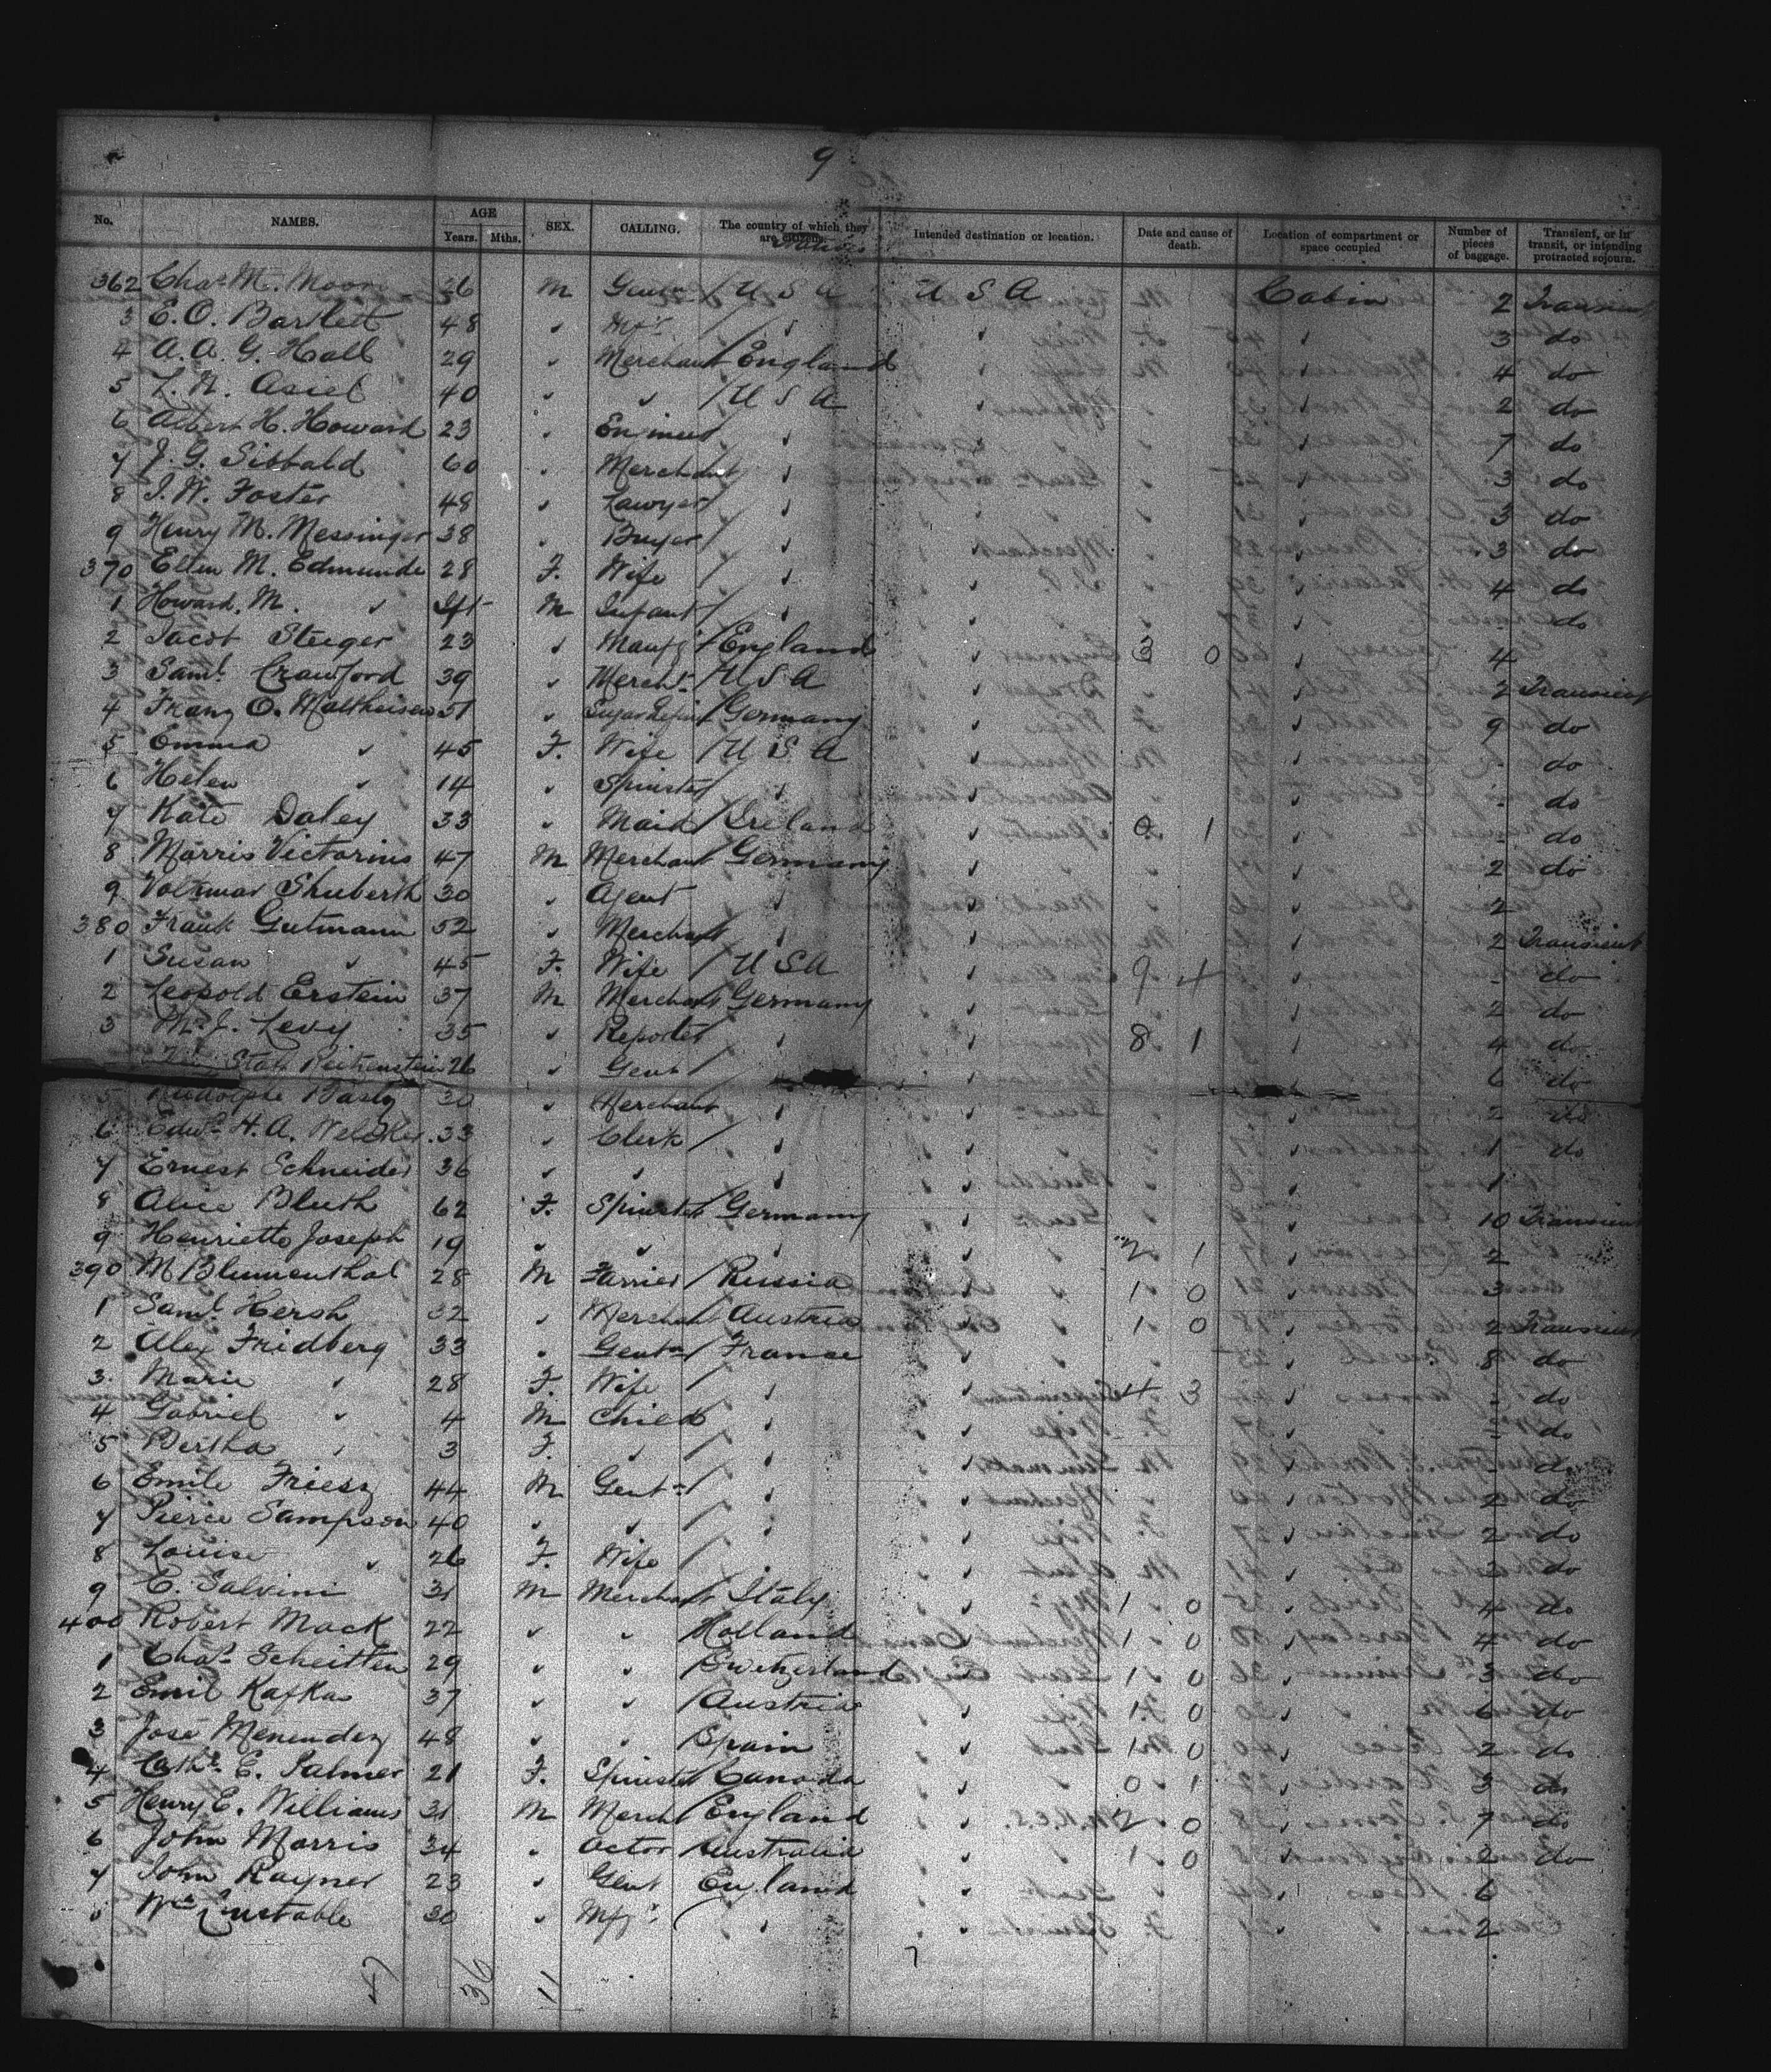 9
No. NAMES. AGE Years. Mths. SEX. CALLING. The country of which they are citizens. Intended destination or location. Date and cause of death. Location of compartment or space occupied Number of pieces of baggage. Transient, or in transit, or intending protracted sojourn.
362 Chas. M. Moore 26 M Gentn / U S A U S A Cabin 2 Transient
3 E. O. Bartlett 48 " Mfr / " " " 3 do
4 A. A. G. Hall 29 " Merchant / England " " 4 do
5 L. N. Asiel 40 " " / U S A " " 2 do
6 Albert H. Howard 23 " Engineer / " " " 7 do
7 J. G. Sibbald 60 " Merchant / " " " 3 do
8 J. W. Foster 48 " Lawyer / " " " 3 do
9 Henry M. Messinger 38 " Buyer / " " " 3 do
370 Ellen M. Edmunds 28 F. Wife / " " " 4 do
1 Howard. M. " M Infant / " " " do
2 Jacob Steiger 23 " Manfg / England " 3 0 " 4
3 Saml. Crawford 39 " Mercht. / U S A " " 2 Transient
4 Franz O. Matthiessen 51 " Sugar Refiner / Germany " " 9 do
5 Emma " 45 F. Wife / U S A " " - do
6 Helen " 14 " Spinster / " " " - do
7 Kate Daley 33 " Maid / Ireland " 0 1 " - do
8 Morris Victorius 47 M Merchant / Germany " " 2 do
9 Voltmar Shuberth 30 " Agent " " " 2
380 Frank Gutmann 52 " Merchant / " " " 2 Transient
1 Susan " 45 F. Wife / U S A " 9 4 " - do
2 Leopold Erstein 37 M Merchant / Germany " " 2 do
3 M. J. Levy 35 " Reporter / " " 8 1 " 4 do
26 " Gent / " " " 6 do
5 Rudolphe 30 " Merchant " " " 2 do
6 Edwd. H. A. 33 " Clerk / " " " 1 do
7 Ernest Schneider 36 " " " " " 1
8 Alice Bluth 62 F. Spinster / Germany " " 10 Transient
9 Henrietta Joseph 19 " " " " 2 1 " 2
390 M Blumenthal 28 M Farrier / Russia " 1 0 " 3
1 Saml. Hersh 32 " Merchant / Austria " 1 0 " 2 Transient
2 Alex Fridberg 33 " Gentn / France " " 8 do
3. Marie " 28 F. Wife / " " 4 3 " - do
4 Gabriel " 4 M Child / " " " - do
5 Bertha " 3 F. " / " " " - do
6 Emile Friesz 44 M Gentn / " " " 2 do
7 Pierce Sampson 40 " " / " " " 2 do
8 Louise " 26 F. Wife / " " " 2 do
9 E. Salvini 31 M Merchant / Italy " 1 0 " 4 do
400 Robert Mack 22 " " / Holland " 1 0 " 4 do
1 Chas. Scheitten 29 " " / Switzerland " 1 0 " 3 do
2 Emil Kafka 37 " " / Austria " 1 0 " 6 do
3 José Menendez 48 " " / Spain " 1 0 " 2 do
4 Cathe. E. Palmer 21 F. Spinster / Canada " 0 1 " 3 do
5 Henry E. Williams 31 M Merch / England " 2 0 " 7 do
6 John Morris 34 " Actor / Australia " 1 0 " 2 do
7 John Rayner 23 " Gent / England " " 6
Wm Constable 30 " Mfr / " " " 2
47 36 11